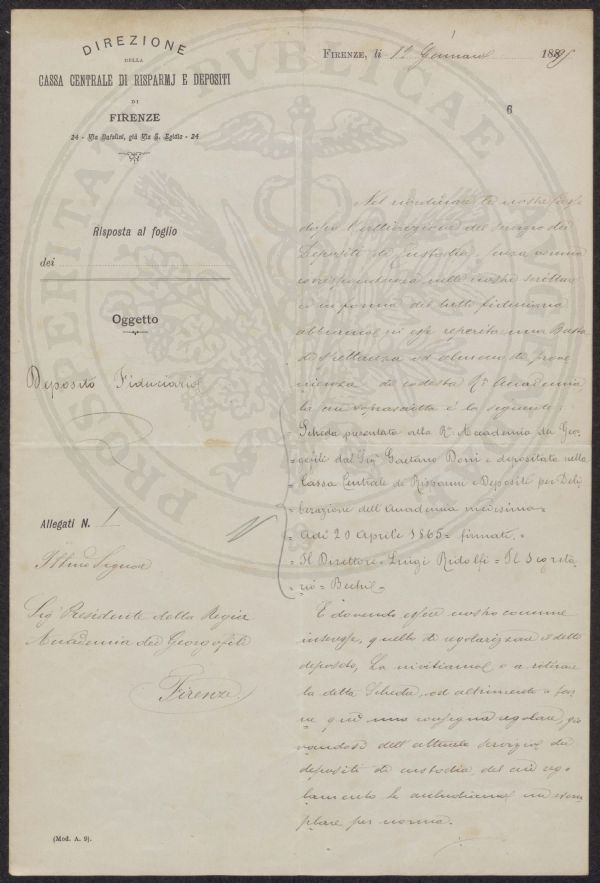 DIREZIONE
DELLA
CASSA CENTRALE DI RISPARMJ E DEPOSITI
DI
FIRENZE
24 - Via Bufalini, già Via S. Egidio - 24
FIRENZE, li 12 Gennaio 1889
6
Risposta al foglio
dei
Oggetto
Deposito Fiduciario
Allegati N. 1
Illmo Signor
Sig Presidente della Regia
Accademia dei Georgofili
Firenze
Nel riordinare le nostre
dopo l'attivazione del servizio dei
Depositi a Custodia, senza veruna
corrispondenza nelle nostre scritture
in forma del tutto fiduciaria
abbiamo in esse reperita una Busta
di spettanza od almeno di prove
nienza di codesta R. Accademia,
la cui soprascritta è la seguente:
"Scheda presentata alla R. Accademia dei Geor
gofili dal Sig. Gaetano Doni e depositata nella
Cassa Centrale di Risparmi e Depositi per Deli
berazione dell'Accademia medesima
Adì 20 Aprile 1865 = firmati
Il Direttore Luigi Ridolfi = Il Segreta
rio
E dovendo esser nostro comune
interesse, quello di regolarizzare il detto
deposito, La invitiamo o a ritirare
la detta Scheda, od altrimenti a far
ne qui una consegna regolare, gio
vandosi dell'attuale servizio dei
depositi di custodia, del cui rego
lamento le acchiudiamo un esem
plare per norma.
(Mod. A. 9).
PROSPERITATI PVBLICAE